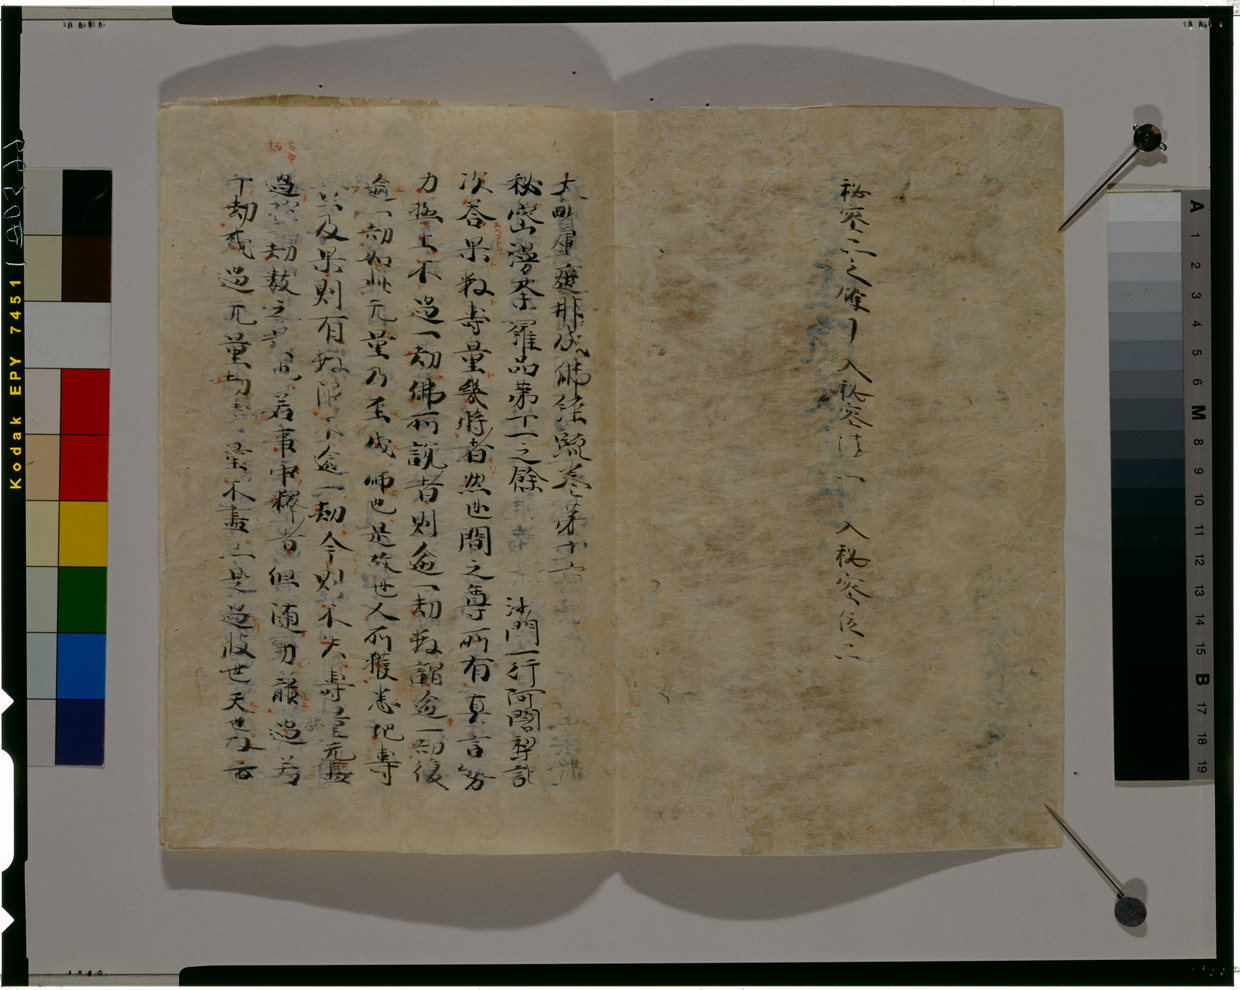 秘密二之餘 入秘密法八 入秘密位二
大毗盧遮那成佛経疏卷第十六
秘密漫荼羅品第十一之餘 沙門一行阿闍梨記
次答果數壽量幾時者然世間之尊所有真言勢
力極上不過一劫佛所說者則逾一劫數謂逾一劫後
逾一劫如此无量乃至成佛也是故世人所獲悉地壽
及果則有數限不逾一劫今則不 壽量无
過 劫數之 也若事中釋者但随功能過若
千劫或過无量劫壽量不盡亦是過彼世天也及云
Kodak EPY 7451
A 1 2 3 4 5 6 M 8 9 10 11 12 13 14 15 B 17 18 19